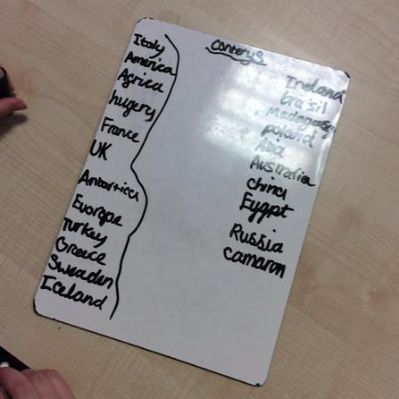 Contery's
Italy
America
Africa
hugery
France
UK
Antartica
Euorope
Turkey
Greece
Sweaden
Iceland
Ireland
brasil
Madagascar
poland
Asia
Australia
China
Eygpt
Russia
camaron